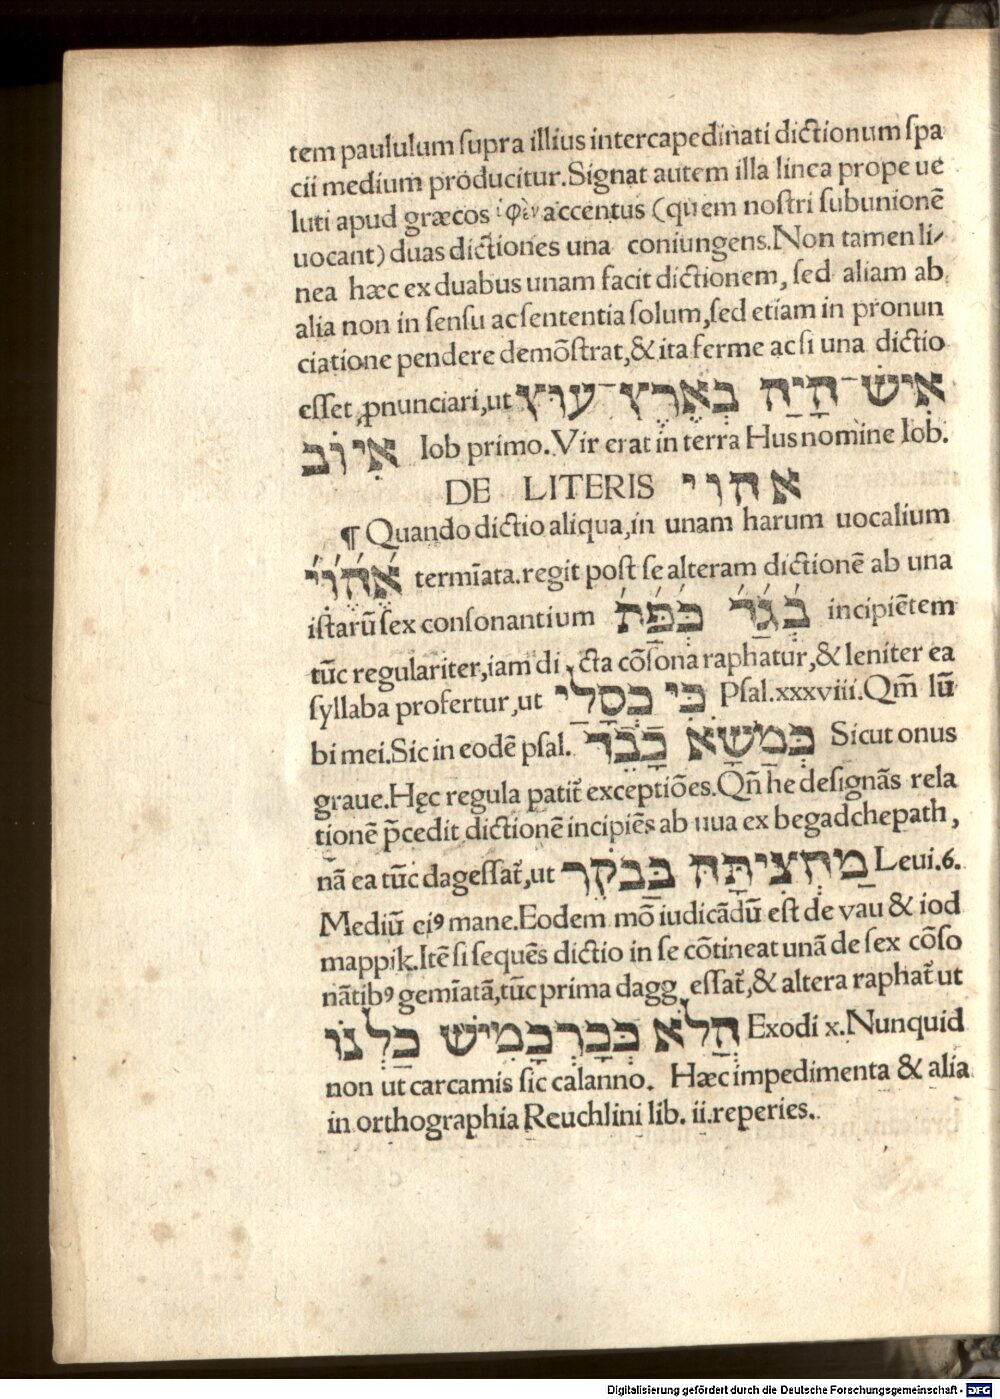 tem paululum ſupra illius intercapedinati dictionum ſpa
cii medium producitur.Signat autem illa linea prope ue
luti apud græcos ὑφὲν accentus (quem noſtri ſubunionē
uocant) duas dictiones una coniungens.Non tamen li⸗
nea hæc ex duabus unam facit dictionem, ſed aliam ab
alia non in ſenſu ac ſententia ſolum,ſed etiam in pronun
ciatione pendere demōſtrat,& ita ferme ac ſi una dictio
eſſet ꝓnunciari,ut אִישׁ־הָיָה בְאֶרֶץ־עוּץ
אִיּוֹב Iob primo.Vir erat in terra Hus nomine Iob.
DE LITERIS אהוי
¶ Quando dictio aliqua,in unam harum uocalium
אהוי termīata.regit poſt ſe alteram dictionē ab una
iſtarū ſex conſonantium בְּגַּדּ כְּפַּתּ incipiētem
tūc regulariter,iam di cta cōſona raphatur,& leniter ea
ſyllaba profertur,ut כִּי כְסָלַי Pſal.xxxviii.Qm̄ lū
bi mei.Sic in eodē pſal. כְּמַשָּׂא כָבֵד Sicut onus
graue.Hęc regula patit̄ exceptiōes.Qn̄ he deſignās rela
tionē p̄cedit dictionē incipiēs ab uua ex begadchepath,
nā ea tūc dageſſat̄,ut מַחֲצִיתָהּ בַּבֹּקֶר Leui.6.
Mediū eiꝰ mane.Eodem mō iudicādū eſt de vau & iod
mappik.Itē ſi ſequēs dictio in ſe cōtineat unā de ſex cōſo
nātibꝰ gemīatā,tūc prima dagg eſſat̄,& altera raphat̄ ut
הֲלֹא כְּכַרְכְּמִישׁ כַּלְנוֹ Exodi x.Nunquid
non ut carcamis ſic calanno. Hæc impedimenta & alia
in orthographia Reuchlini lib. ii.reperies.
Digitalisierung gefördert durch die Deutsche Forschungsgemeinschaft - DFG